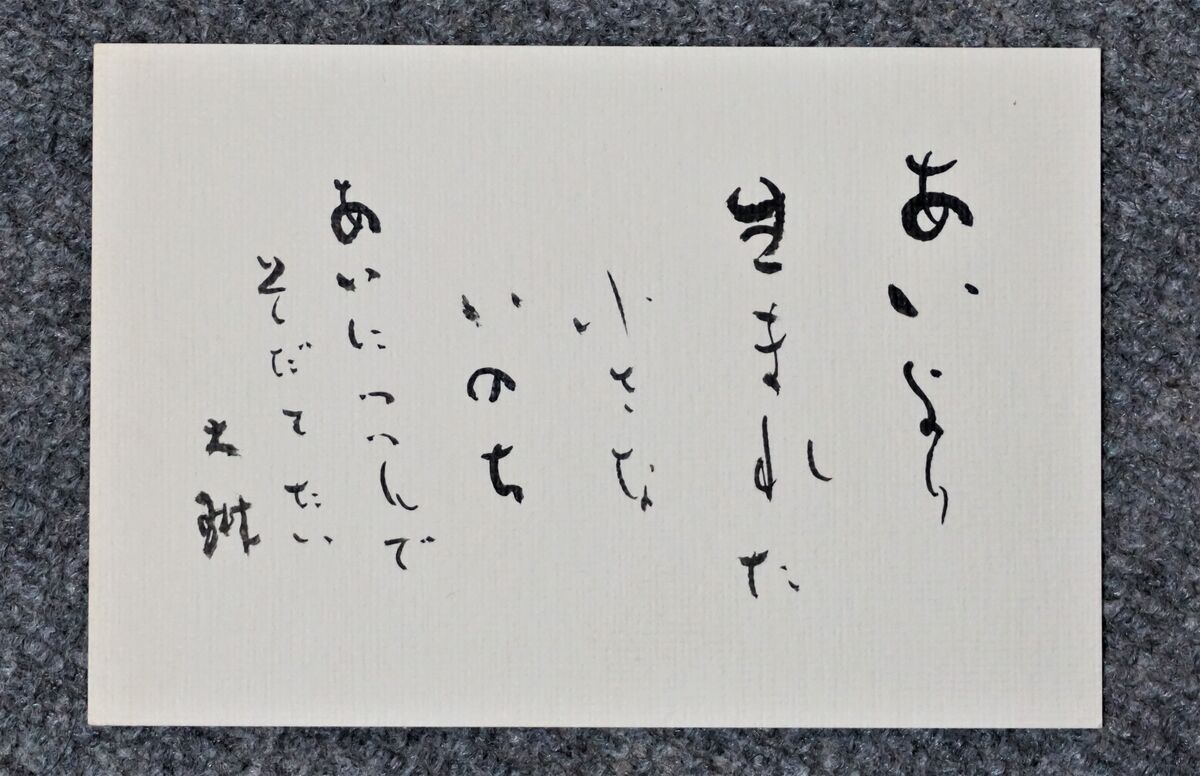 あいより
生まれた
小さな
いのち
あいにつつんで
そだてたい